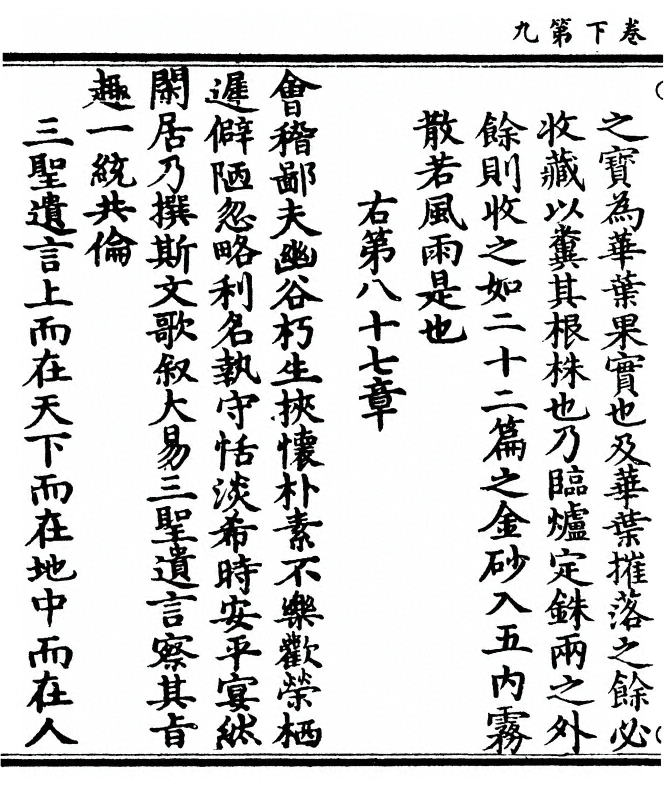 卷下第九
之寶為華葉果實也及華葉摧落之餘必
收藏以糞其根株也乃臨爐定銖兩之外
餘則收之如二十二篇之金砂入五內霧
散若風雨是也
右第八十七章
會稽鄙夫幽谷朽生挾懷朴素不樂歡榮栖
遲僻陋忽略利名執守恬淡希時安平宴然
閑居乃撰斯文歌叙大易三聖遺言察其旨
趣一統共倫
三聖遺言上而在天下而在地中而在人